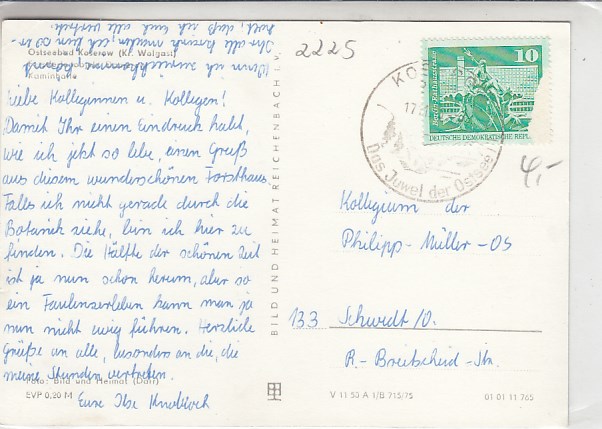 Ostseebad Koserow (Kr. Wolgast)
Kaminhalle
Liebe Kolleginnen u. Kollegen!
Damit Ihr einen Eindruck habt,
wie ich jetzt so lebe, einen Gruß
aus diesem wunderschönen Forsthaus.
Falls ich nicht gerade durch die
Botanik ziehe, bin ich hier zu
finden. Die Hälfte der schönen Zeit
ist ja nun schon herum, aber so
ein Faulenzerleben kann man ja
nun nicht ewig führen. Herzliche
Grüße an alle, besonders an die, die
meine Stunden vertreten.
Eure Ilse
Wenn ich zurückkomme,
Ihr alle
daß ich Euch alle
Foto: Bild und Heimat (Darr)
EVP 0,20 M
BILD UND HEIMAT REICHENBACH i. V.
2225
10
DEUTSCHE DEMOKRATISCHE REPU
Das Juwel der Ostsee
4,-
Kollegium der
Philipp-Müller-OS
133 Schwedt/O.
R.-Breitscheid-Str.
V 11 50 A 1/B 715/75
01 01 11 765